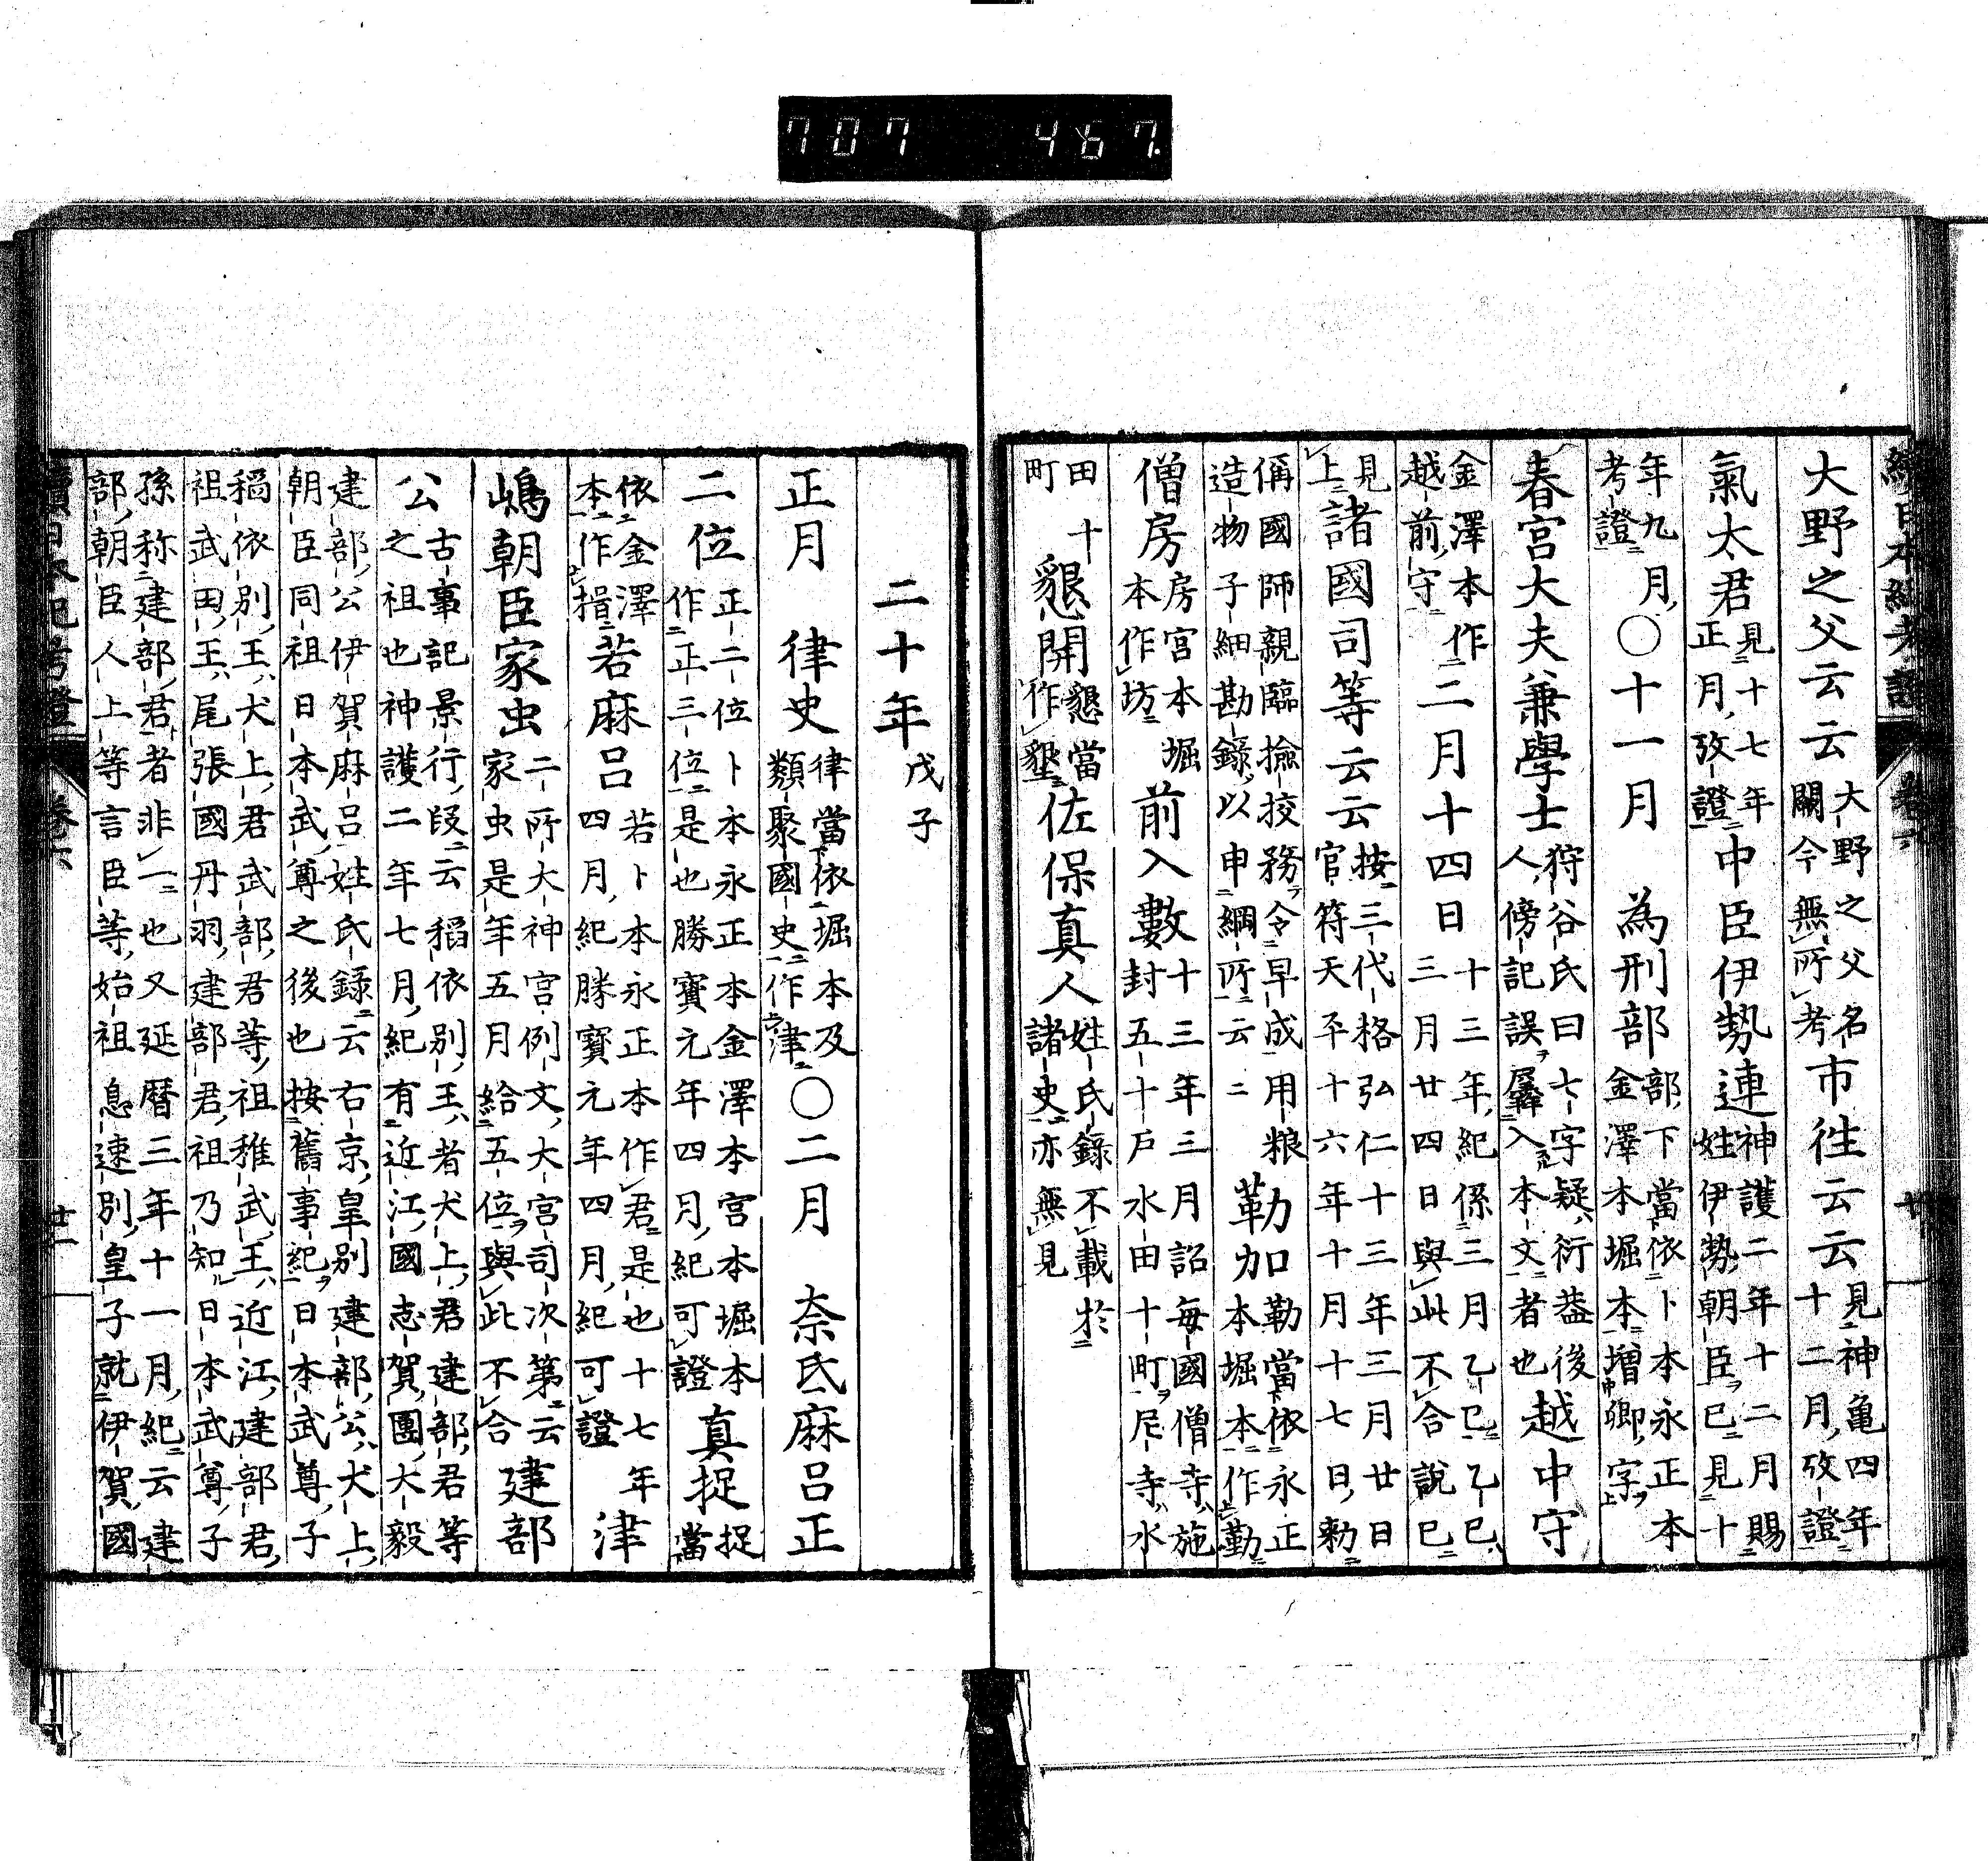 707 467.
續日本紀考證 卷六 廿
大野之父云云 大野之父名闕今無所考 市往云云 見神亀四年十二月攷證
氣太君 見十七年正月攷證 中臣伊勢連 神護二年十二月賜姓伊勢朝臣已見十
年九月考證 〇十一月 為刑部 部下當依卜本永正本金澤本堀本増卿字
春宮大夫兼學士 狩谷氏曰七字疑衍葢後人傍記誤羼入本文者也 越中守
金澤本作越前守 二月十四日 十三年紀係三月乙巳乙巳三月廿四日與此不合説已
見上 諸國司等云云 按三代格弘仁十三年三月廿日官符天平十六年十月十七日勅
偁國師親臨撿挍務令早成用粮造物子細勘錄以申綱所云二 勒加 勒當依永正本堀本作勤
僧房 房宮本堀本作坊 前入數 十三年三月詔毎國僧寺施封五十戸水田十町尼寺水
田十町 懇開 懇當作墾 佐保真人 姓氏錄不載於諸史亦無見
二十年 戊子
正月 律史 律當依堀本及類聚國史作津 〇二月 奈氐麻呂正
二位 正二位卜本永正本金澤本宮本堀本作正三位是也勝寶元年四月紀可證 真捉 捉當
依金澤本作揩 若麻呂 若卜本永正本作君是也十七年四月紀勝寶元年四月紀可證 津
嶋朝臣家虫 二所大神宮例文大宮司次第云家虫是年五月給五位與此不合 建部
公 古事記景行段云稻依別王者犬上君建部君等之祖也神護二年七月紀有近江國志賀團大毅
建部公伊賀麻呂姓氏錄云右京皇別建部公犬上朝臣同祖日本武尊之後也按舊事紀日本武尊子
稻依別王犬上君武部君等祖稚武王近江建部君祖武田王尾張國丹羽建部君祖乃知日本武尊子
孫称建部君者非一也又延暦三年十一月紀云建部朝臣人上等言臣等始祖息速別皇子就伊賀國
續日本紀考證 卷六 廿一